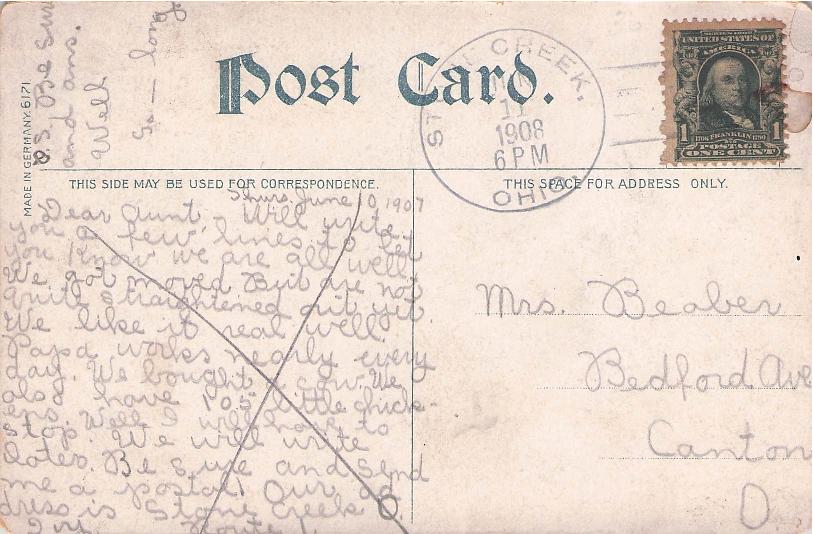 P.S. Be sure
and ans.
Well
So-long
Post Card.
STONE CREEK,
11
1908
6 PM
OHIO.
SERIES 1902
UNITED STATES OF
AMERICA
1 FRANKLIN 1
POSTAGE
ONE CENT
MADE IN GERMANY. 6171
THIS SIDE MAY BE USED FOR CORRESPONDENCE.
THIS SPACE FOR ADDRESS ONLY.
Thurs. June 10, 1907
Dear Aunt, Will write
you a few lines to let
you know we are all well.
We got moved But are not
quite straightened out yet.
We like it real well.
Papa works nearly every
day. We bought a cow. We
also have 105 little chick-
ens. Well I will have to
stop. We will write
later. Be sure and send
me a postal. Our ad-
dress is Stone Creek O.
Route 1.
Mrs. Beaber
Bedford Ave
Canton
O.